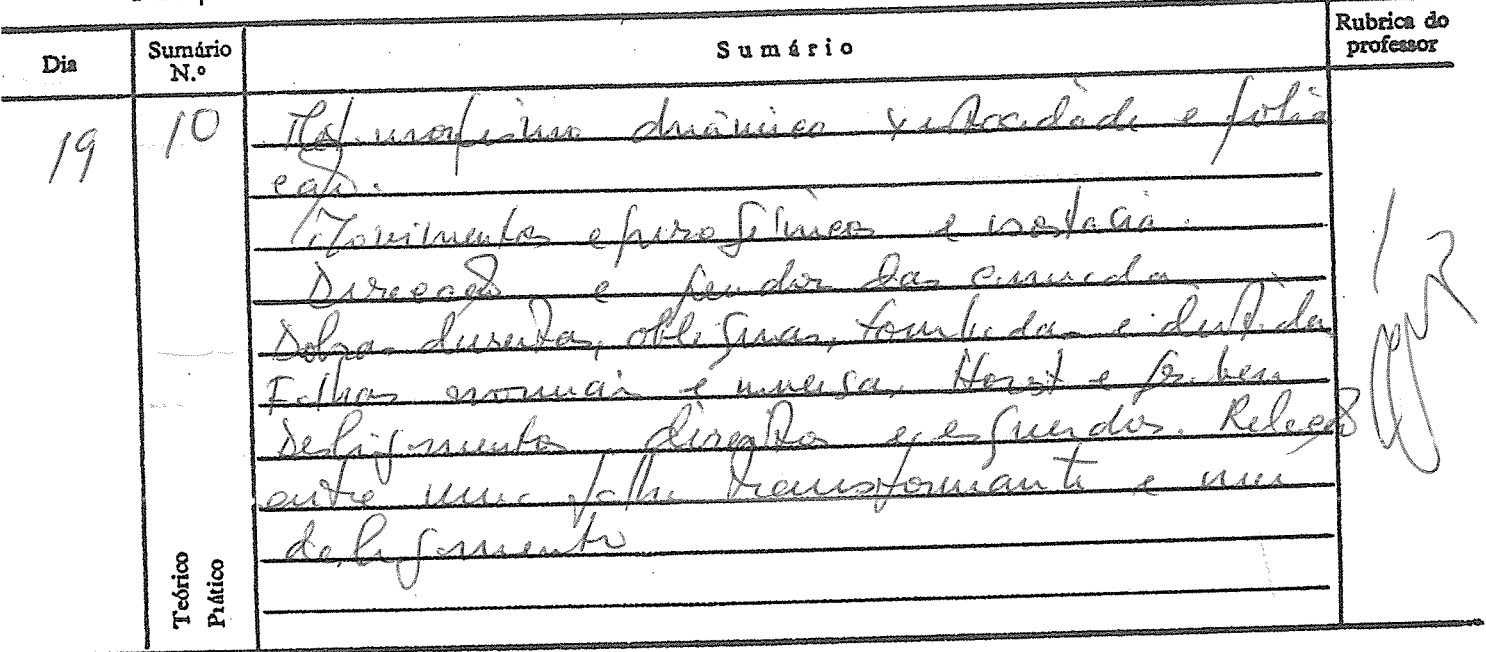 Dia
Sumário N.º
Sumário
Rubrica do professor
19
10
Metamorfismo dinâmico xistosidade e folia
ção.
Movimentos epirogénicos e isostasia.
Direcção e pendor das camadas
Dobras direitas, oblíquas, tombadas e deitadas
Falhas normais e inversas Horst e graben
Desligamentos direitos e esquerdos. Relação
entre uma falha transformante e um
desligamento
Teórico
Prático